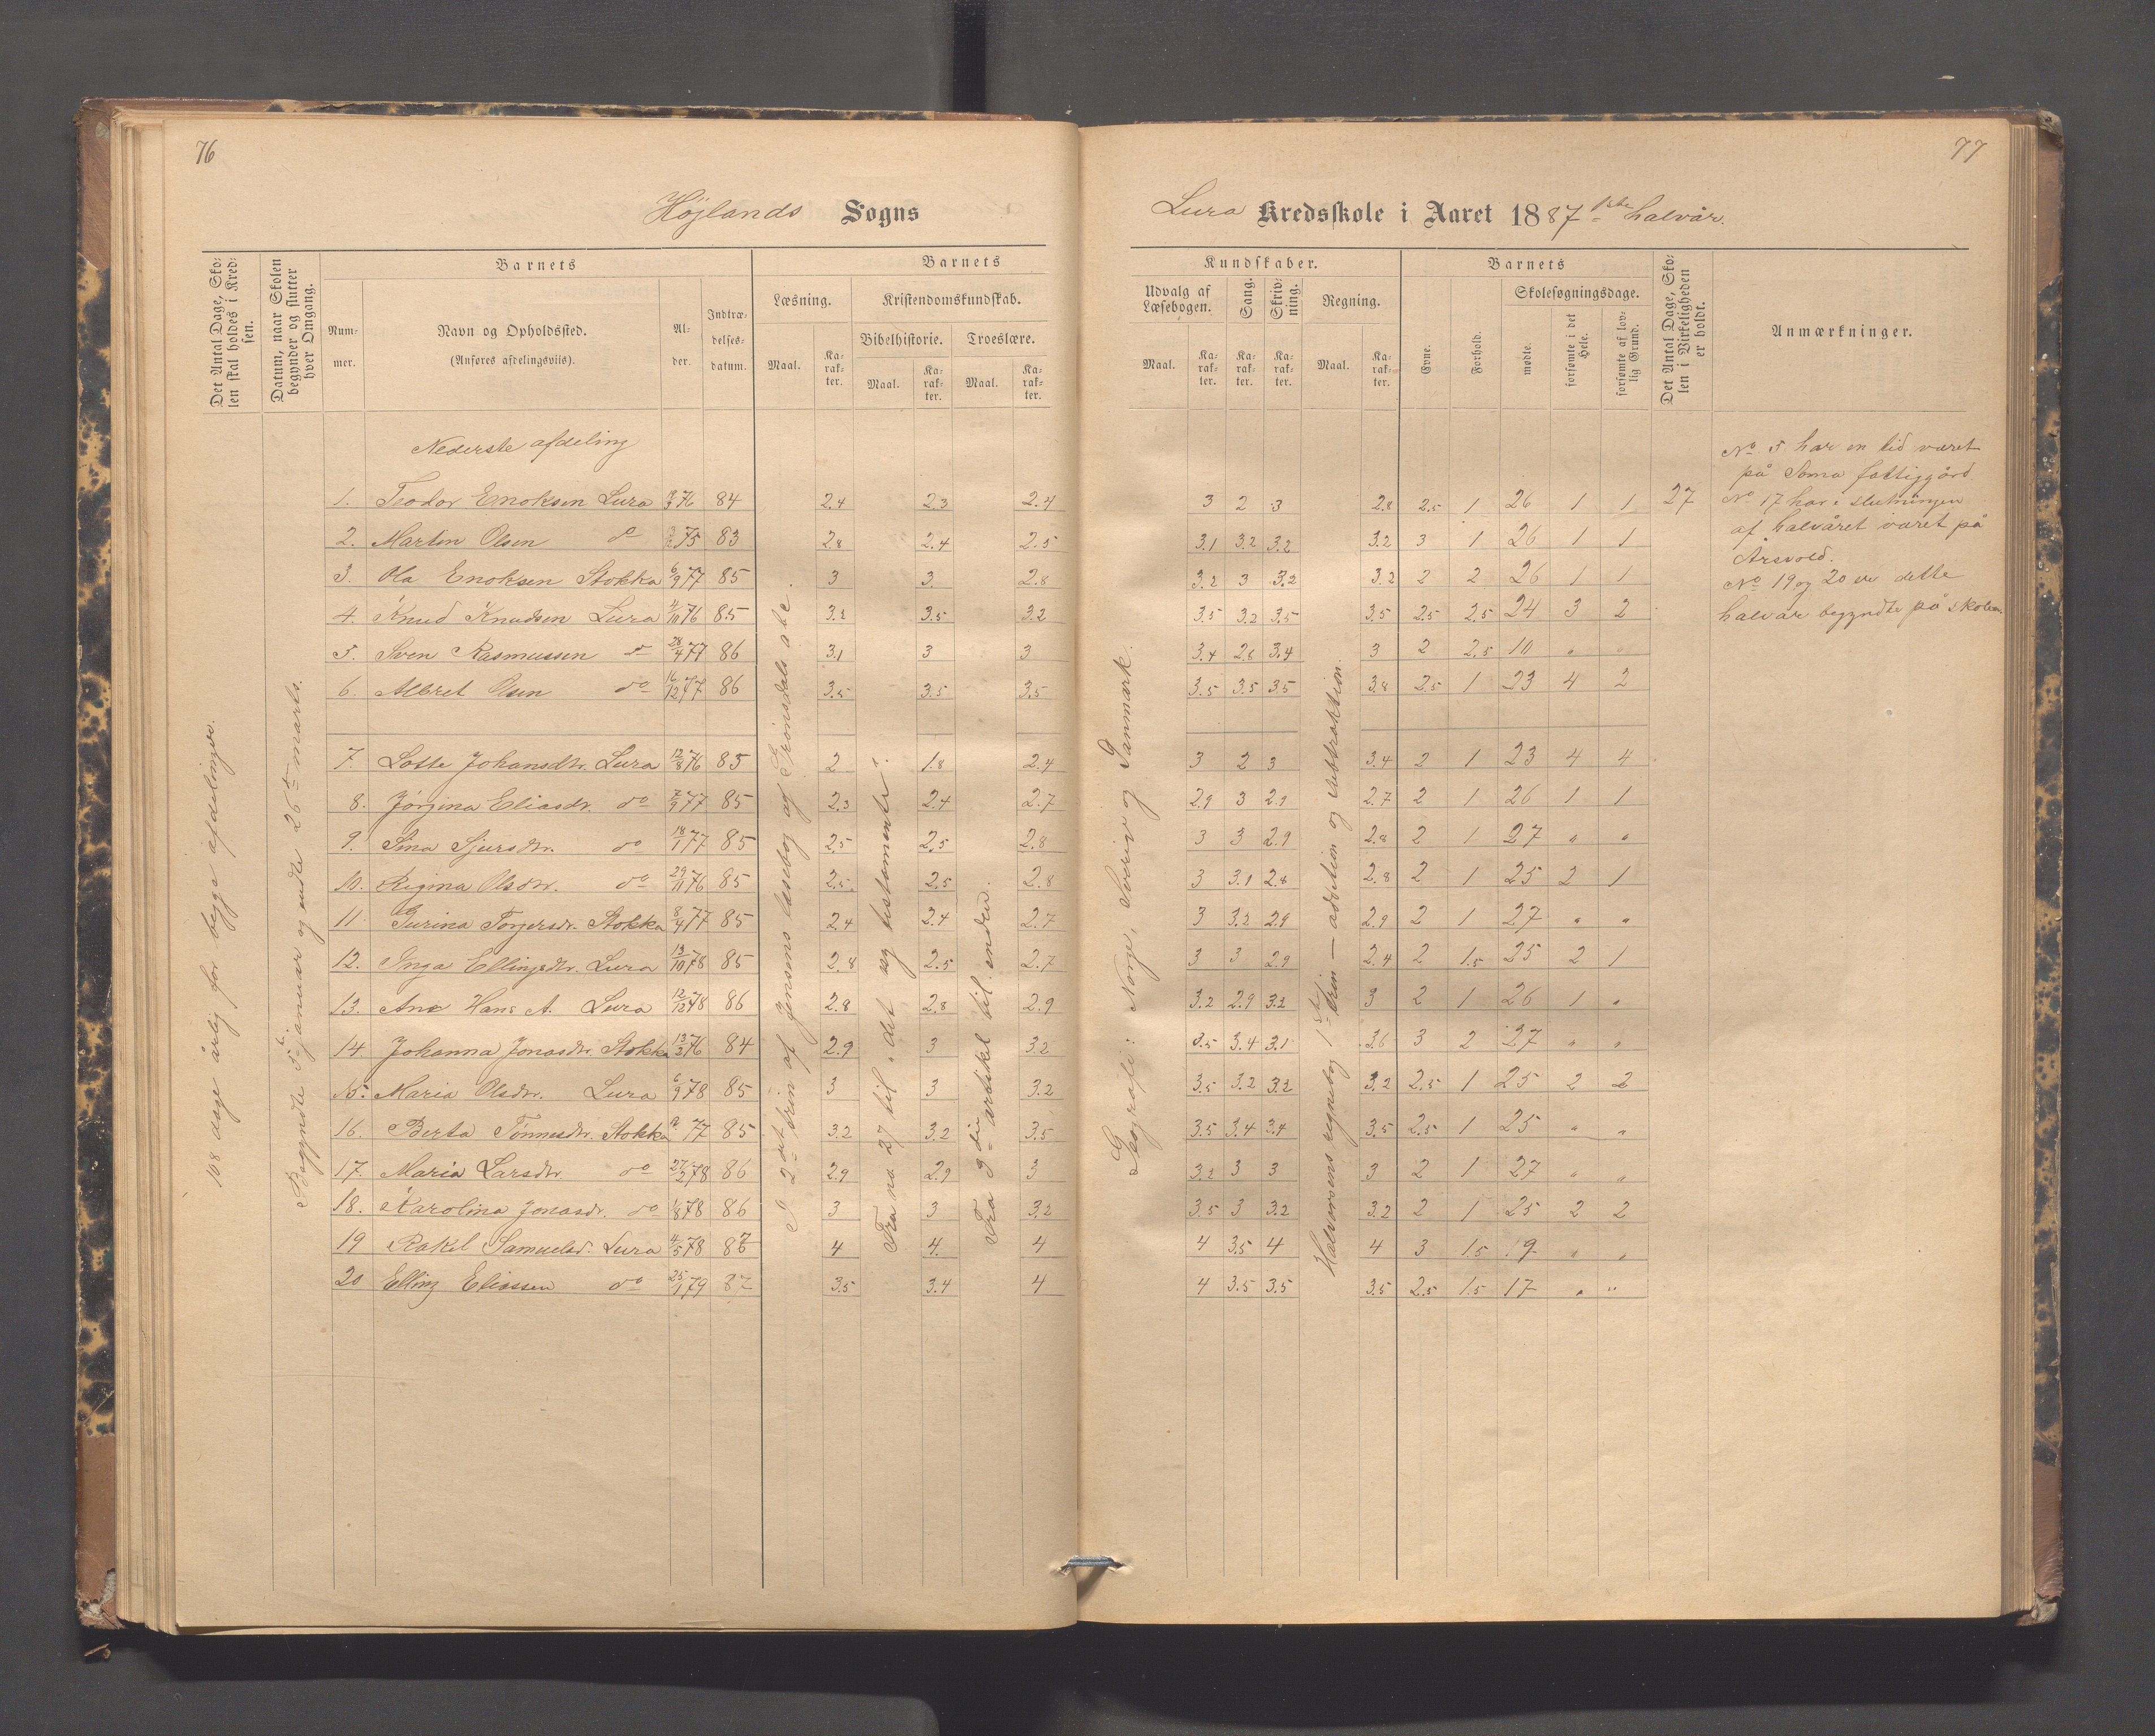 76
Højlands Sogns
Det Antal Dage, Sko-
len skal holdes i Kred-
sen.
Datum, naar Skolen
begynder og slutter
hver Omgang.
Barnets
Num-
mer.
Navn og Opholdssted.
(Anføres afdelingsviis).
Al-
der.
Indtræ-
delses-
datum.
Barnets
Læsning.
Maal.
Ka-
rak-
ter.
Kristendomskundskab.
Bibelhistorie.
Maal.
Ka-
rak-
ter.
Troeslære.
Maal.
Ka-
rak-
ter.
108 dage årlig for begge afdelinger.
Begyndte 5te januar og endte 26de marts.
Nederste afdeling
1. Teodor Enoksen Lura 76 84 2.4 2.3 2.4
2. Marten Olsen do 75 83 2.8 2.4 2.5
3. Ola Enoksen Stokka 6/9 77 85 3 3 2.8
4. Knud Knudsen Lura 4/10 76 85 3.2 3.5 3.2
5. Sven Rasmussen do 28/4 77 86 3.1 3 3
6. Albret Olsen do 16/12 77 86 3.5 3.5 3.5
7. Lotte Johansdtr. Lura 12/8 76 85 2 1.8 2.4
8. Jörgina Eliasdr. do 7/9 77 85 2.3 2.4 2.7
9. Sina Sjursdtr. do 18/1 77 85 2.5 2.5 2.8
10. Regina Olsdtr. do 29/11 76 85 2.5 2.5 2.8
11. Gurina Torgersdr. Stokka 8/4 77 85 2.4 2.4 2.7
12. Inga Ellingsdtr. Lura 13/10 78 85 2.8 2.5 2.7
13. Ane Hans A. Lura 12/12 78 86 2.8 2.8 2.9
14. Johanna Jonasdtr. Stokka 13/2 76 84 2.9 3 3.2
15. Maria Olsdtr. Lura 6/9 78 85 3 3 3.2
16. Berta Tönnesdtr. Stokka 77 85 3.2 3.2 3.5
17. Maria Larsdtr. do 27/2 78 86 2.9 2.9 3
18. Karolina Jonasdr. do 1/8 78 86 3 3 3.2
19 Rakel Samuelsd. Lura 4/5 78 87 4 4 4
20 Elling Eliassen do 25/1 79 87 3.5 3.4 4
I 2det trin af Jensens læsebog og af Grönsdals abc.
Fra no 27 til "det ny testamente".
Fra 3die artikel til enden.
77
Lura Kredsskole i Aaret 1887 1ste halvår.
Kundskaber.
Udvalg af
Læsebogen.
Maal.
Ka-
rak-
ter.
Sang.
Ka-
rak-
ter.
Skriv-
ning.
Ka-
rak-
ter.
Regning.
Maal.
Ka-
rak-
ter.
Barnets
Evne.
Forhold.
Skolesøgningsdage.
mødte.
forsømte i det
Hele.
forsømte af lov-
lig Grund.
Det Antal Dage, Sko-
len i Virkeligheden
er holdt.
Anmærkninger.
3 2 3 2.8 2.5 1 26 1 1 27
3.1 3.2 3.2 3.2 3 1 26 1 1
3.2 3 3.2 3.2 2 2 26 1 1
3.5 3.2 3.5 3.5 2.5 2.5 24 3 2
3.4 2.8 3.4 3 2 2.5 10 " "
3.5 3.5 3.5 3.8 2.5 1 23 4 2
3 2 3 3.4 2 1 23 4 4
2.9 3 2.9 2.7 2 1 26 1 1
3 3 2.9 2.8 2 1 27 " "
3 3.1 2.8 2.8 2 1 25 2 1
3 3.2 2.9 2.9 2 1 27 " "
3 3 2.9 2.4 2 1.5 25 2 1
3.2 2.9 3.2 3 2 1 26 1 "
3.5 3.4 3.1 3.6 3 2 27 " "
3.5 3.2 3.2 3.2 2.5 1 25 2 2
3.5 3.4 3.4 3.5 2.5 1 25 " "
3.2 3 3 3 2 1 27 " "
3.5 3 3.2 3.2 2 1 25 2 2
4 3.5 4 4 3 1.5 9 " "
4 3.5 3.5 3.5 2.5 1.5 17 " "
Geografi: Norge, Sverig og Danmark.
Halvorsens regnebog 1ste trin — addition og subtraktion.
No 5 har en tid været
på Soma fattiggård
No 17 har i slutningen
af halvåret været på
Årsvold.
No 19 og 20 er dette
halvår begyndte på skolen.